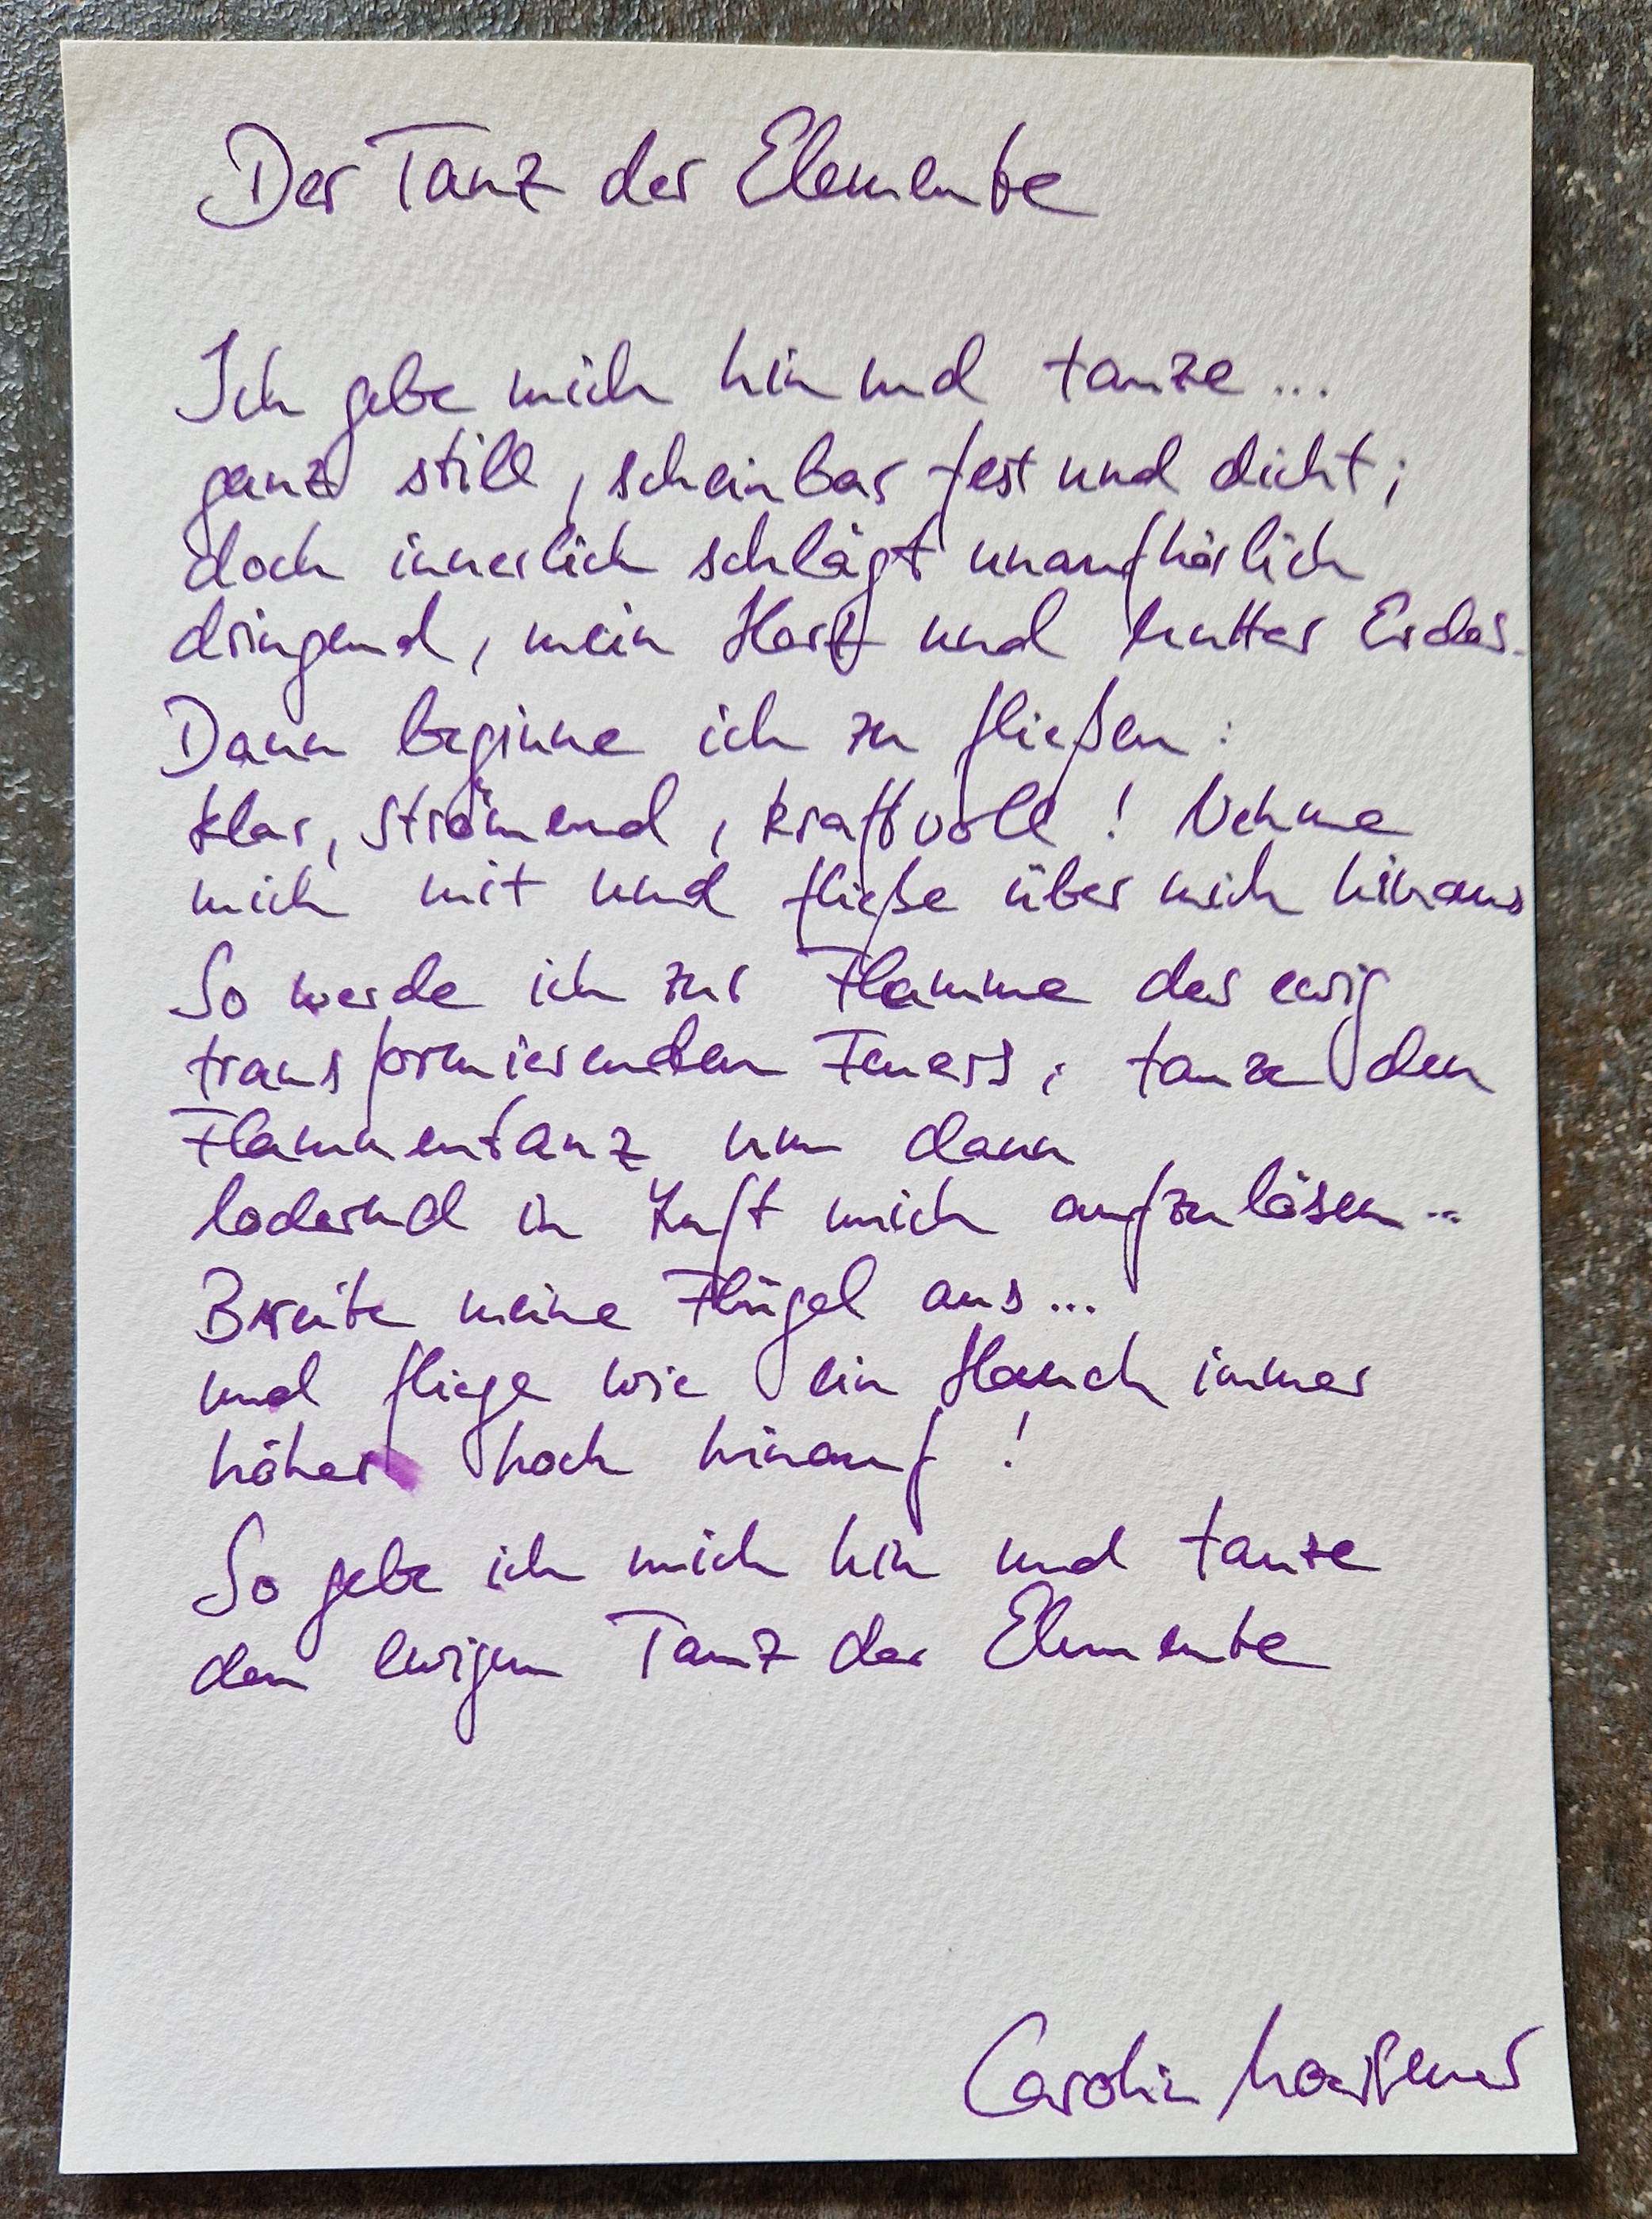 Der Tanz der Elemente
Ich gebe mich hin und tanze...
ganz still, scheinbar fest und dicht;
doch innerlich schlägt unaufhörlich
dringend, mein Herz und Mutter Erdes.
Dann beginne ich zu fließen:
klar, strömend, kraftvoll! Nehme
mich mit und fließe über mich hinaus
So werde ich zur Flamme des ewig
transformierenden Feuers; tanze den
Flammentanz um dann
lodernd in Luft mich aufzulösen..
Breite meine Flügel aus...
und fliege wie ein Hauch immer
höher hoch hinauf!
So gebe ich mich hin und tanze
den ewigen Tanz der Elemente
Carolin